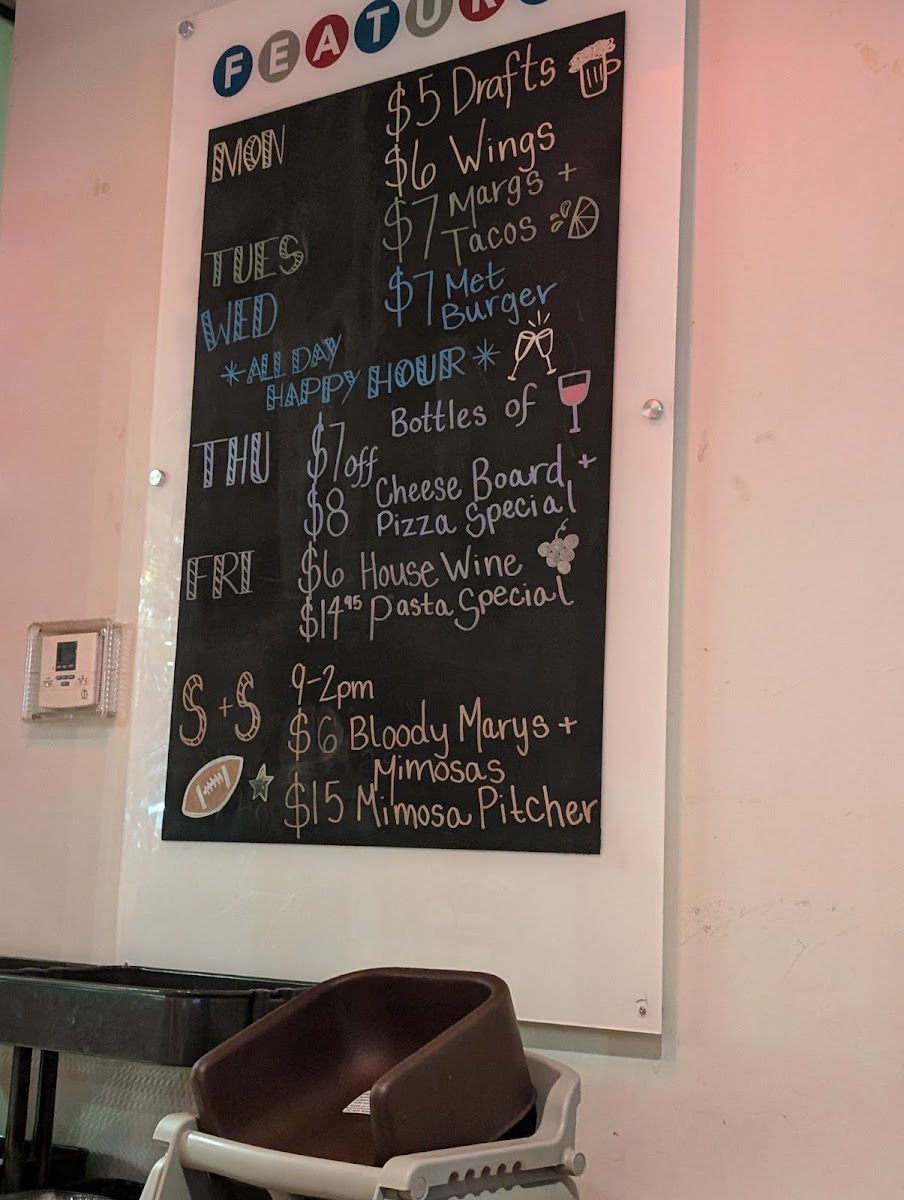 FEATURE
MON $5 Drafts
$6 Wings
TUES $7 Margs +
Tacos
WED $7 Met
Burger
*ALL DAY
HAPPY HOUR*
THU $7 off Bottles of
$8 Cheese Board +
Pizza Special
FRI $6 House Wine
$14.95 Pasta Special
S + S 9-2pm
$6 Bloody Marys +
Mimosas
$15 Mimosa Pitcher